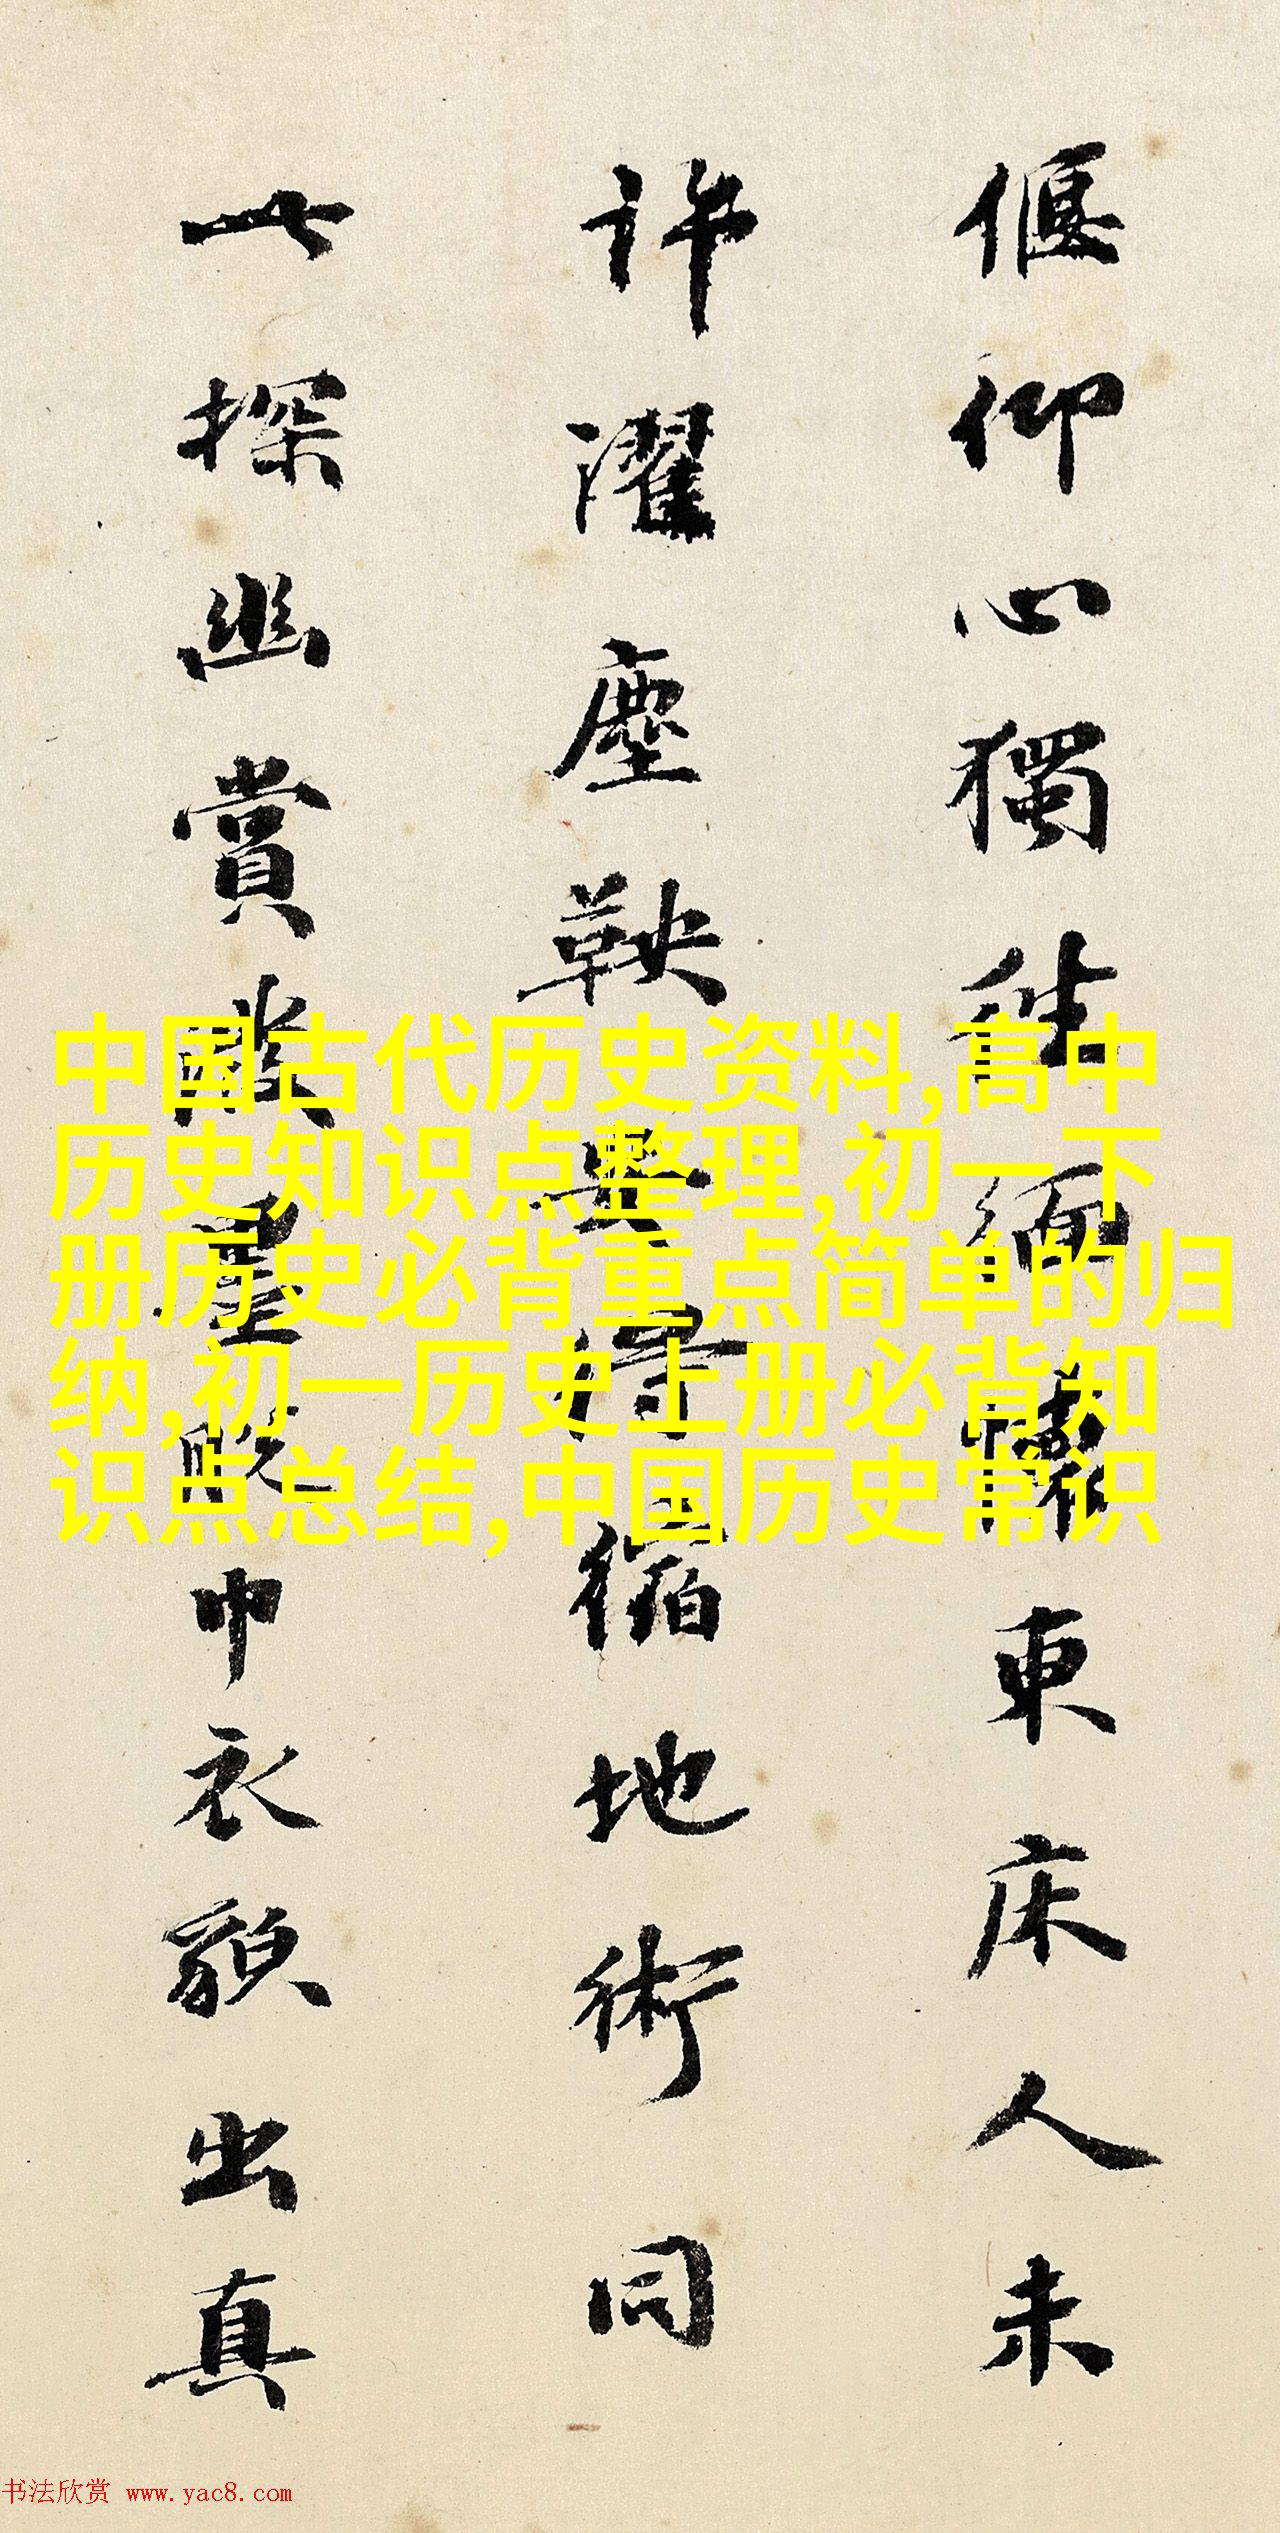 偃仰心獨往緬懷東床人未
許濯塵鞅安得縮地術同
此探幽賞巾衣貌出真
中国古代历史资料,高中
历史知识点整理,初一下
册历史必背重点简单的归
纳,初一历史上册必背知
识点总结,中国历史常识
书法欣赏 www.yac8.com